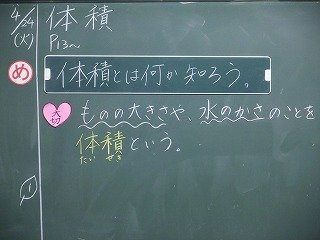 4/24 体積
(火) P13〜
め 体積とは何か知ろう。
大切 ものの大きさや、水のかさのことを
体積という。
たい せき
1